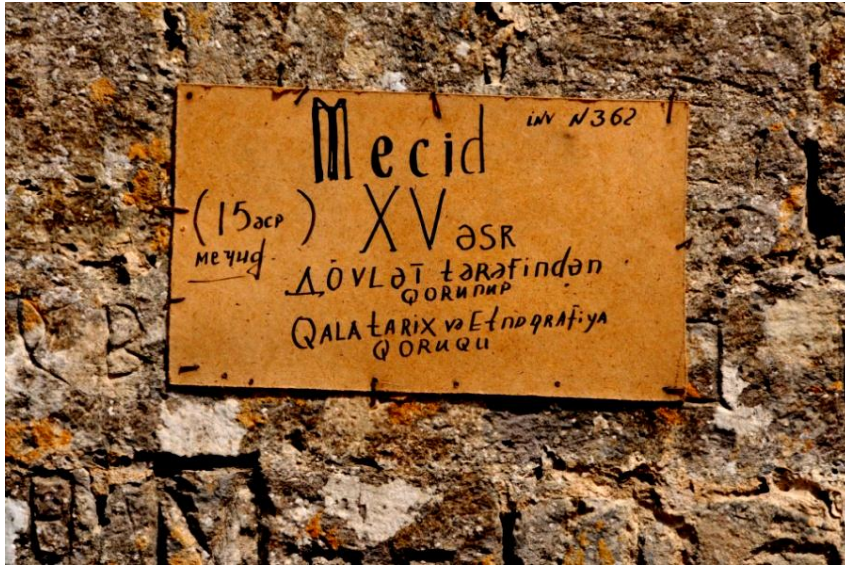 inv N 362
Mecid
(15 əср) XV əSR
мечид
ДÖVLəT tərəfindən
QORUNUR
QALA tARIX və Etnoqrafiya
QORUQU